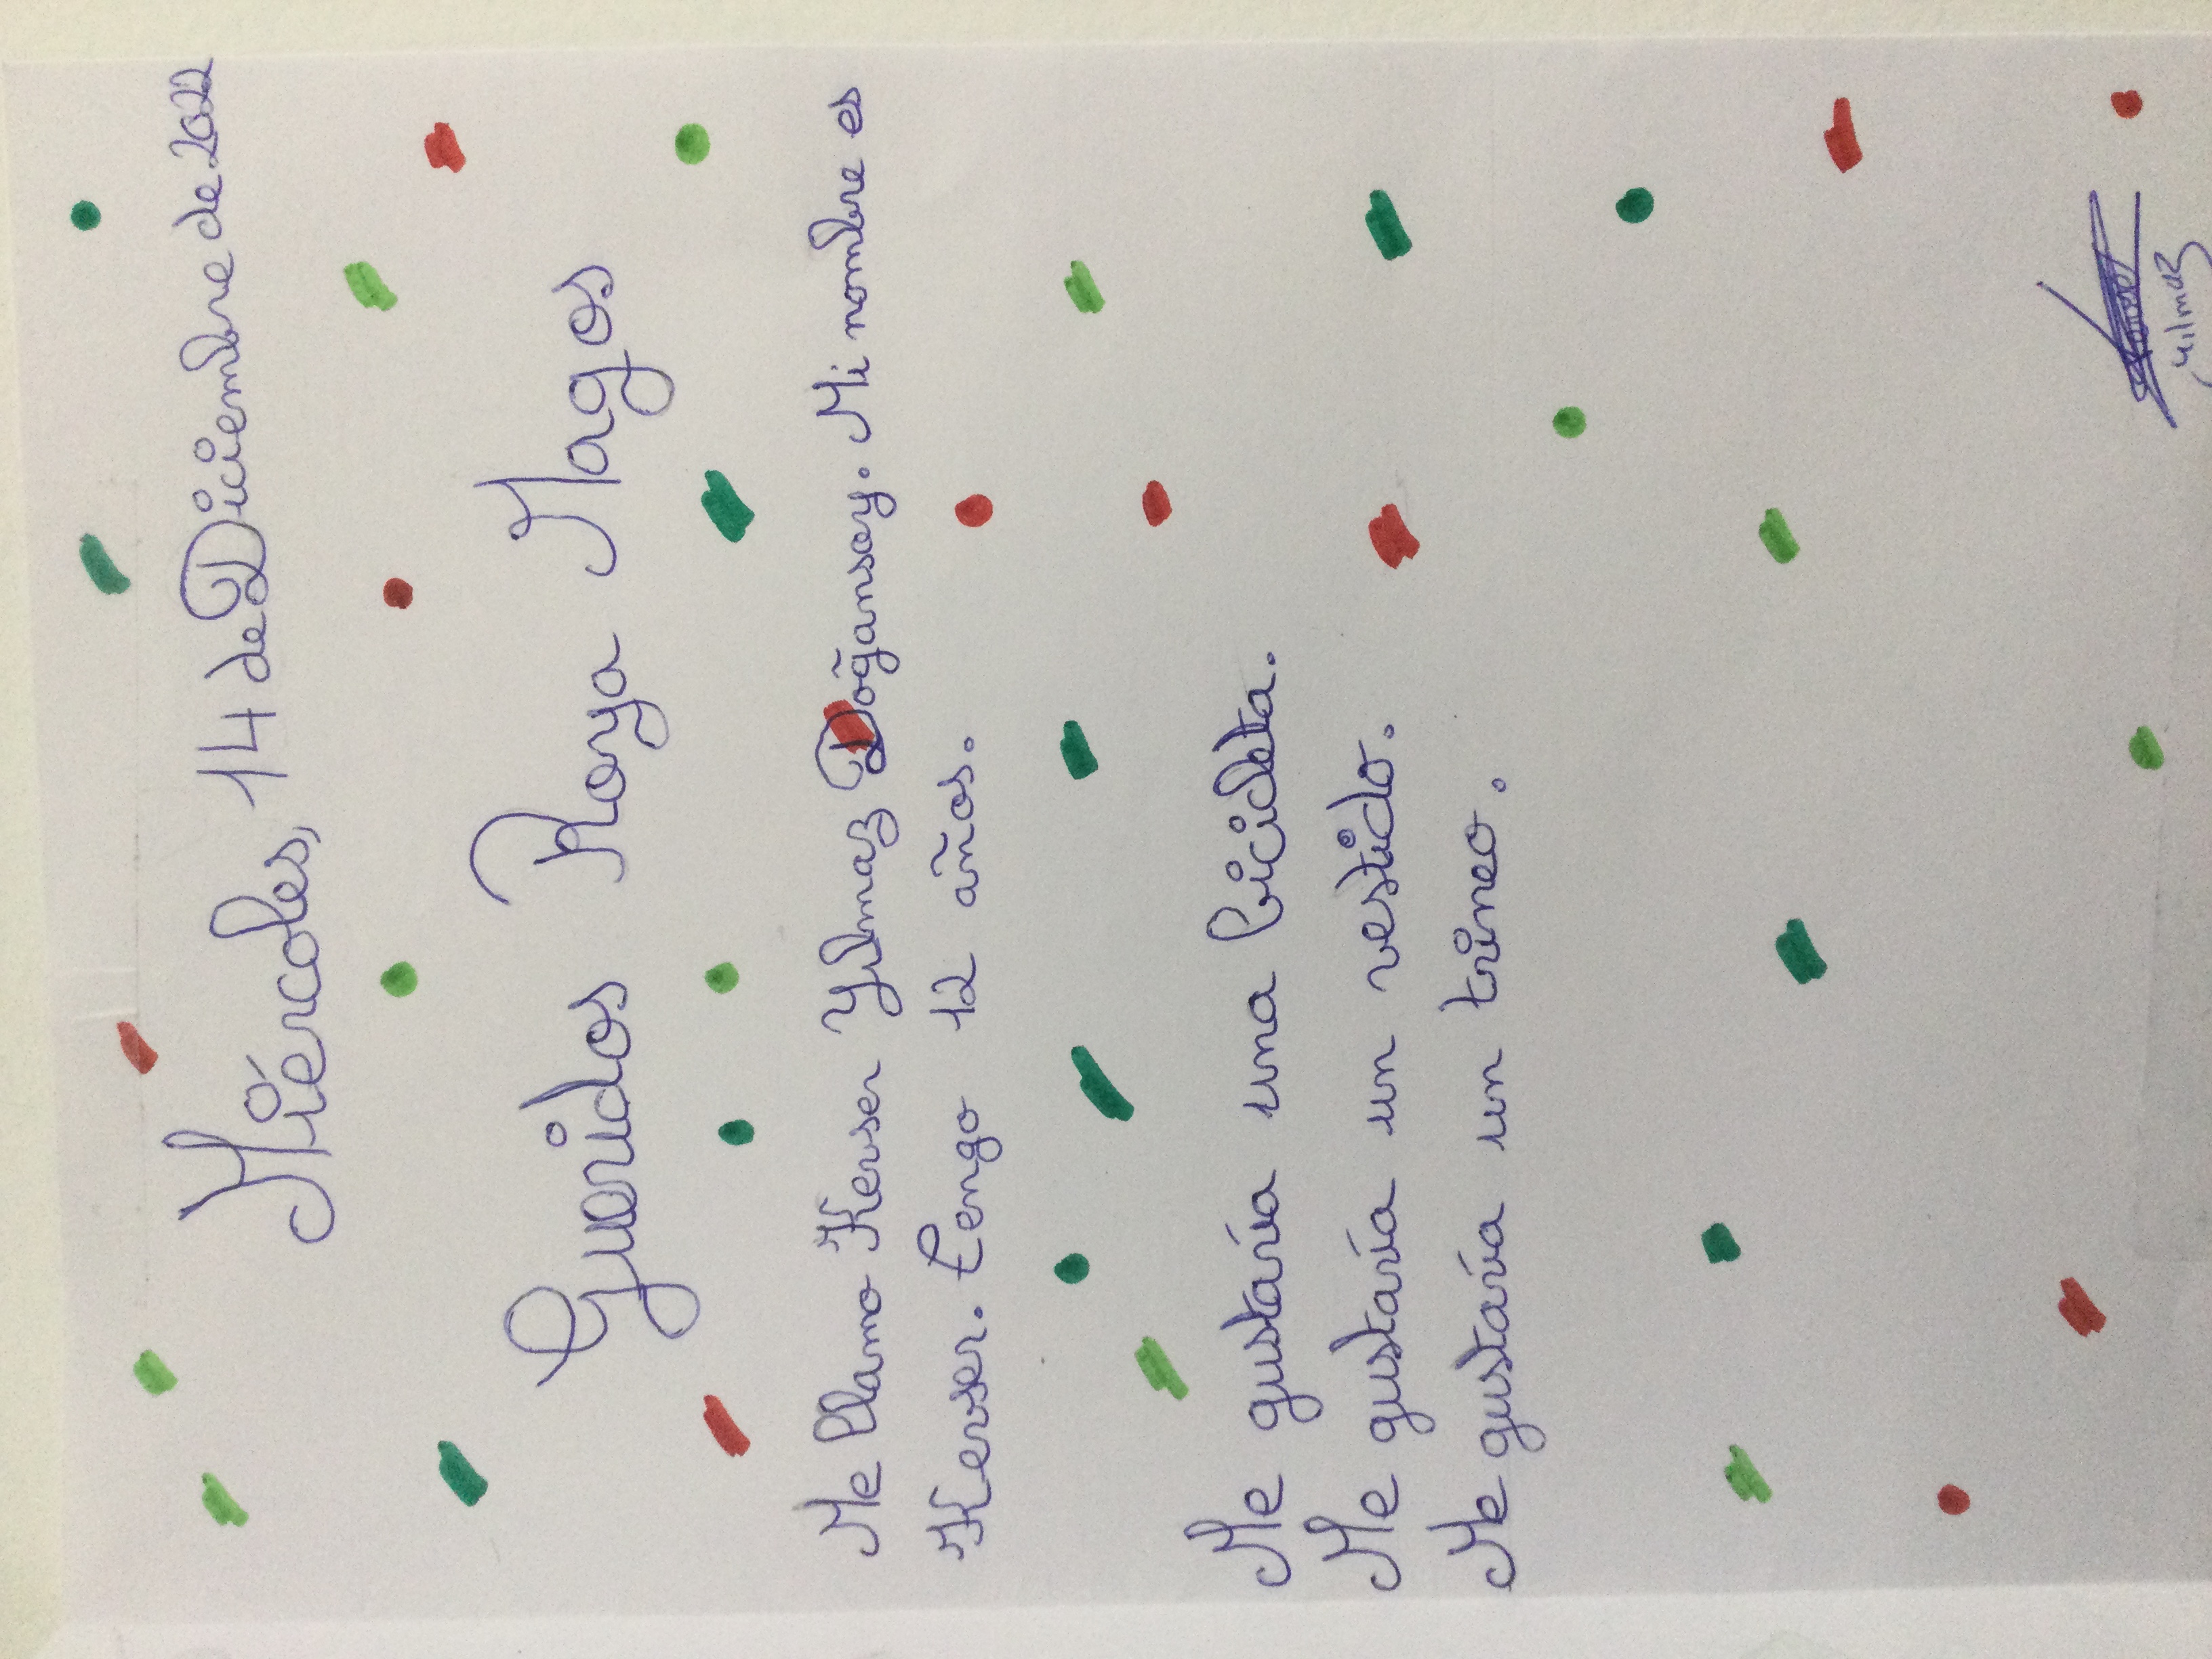 Miércoles, 14 de Diciembre de 2022
Queridos Reya Magos
Me llamo Kevser Yılmaz Doğansay. Mi nombre es
Kevser. Tengo 12 años.
Me gustaría una bicicleta.
Me gustaría un vestido.
Me gustaría un trineo.
Yılmaz